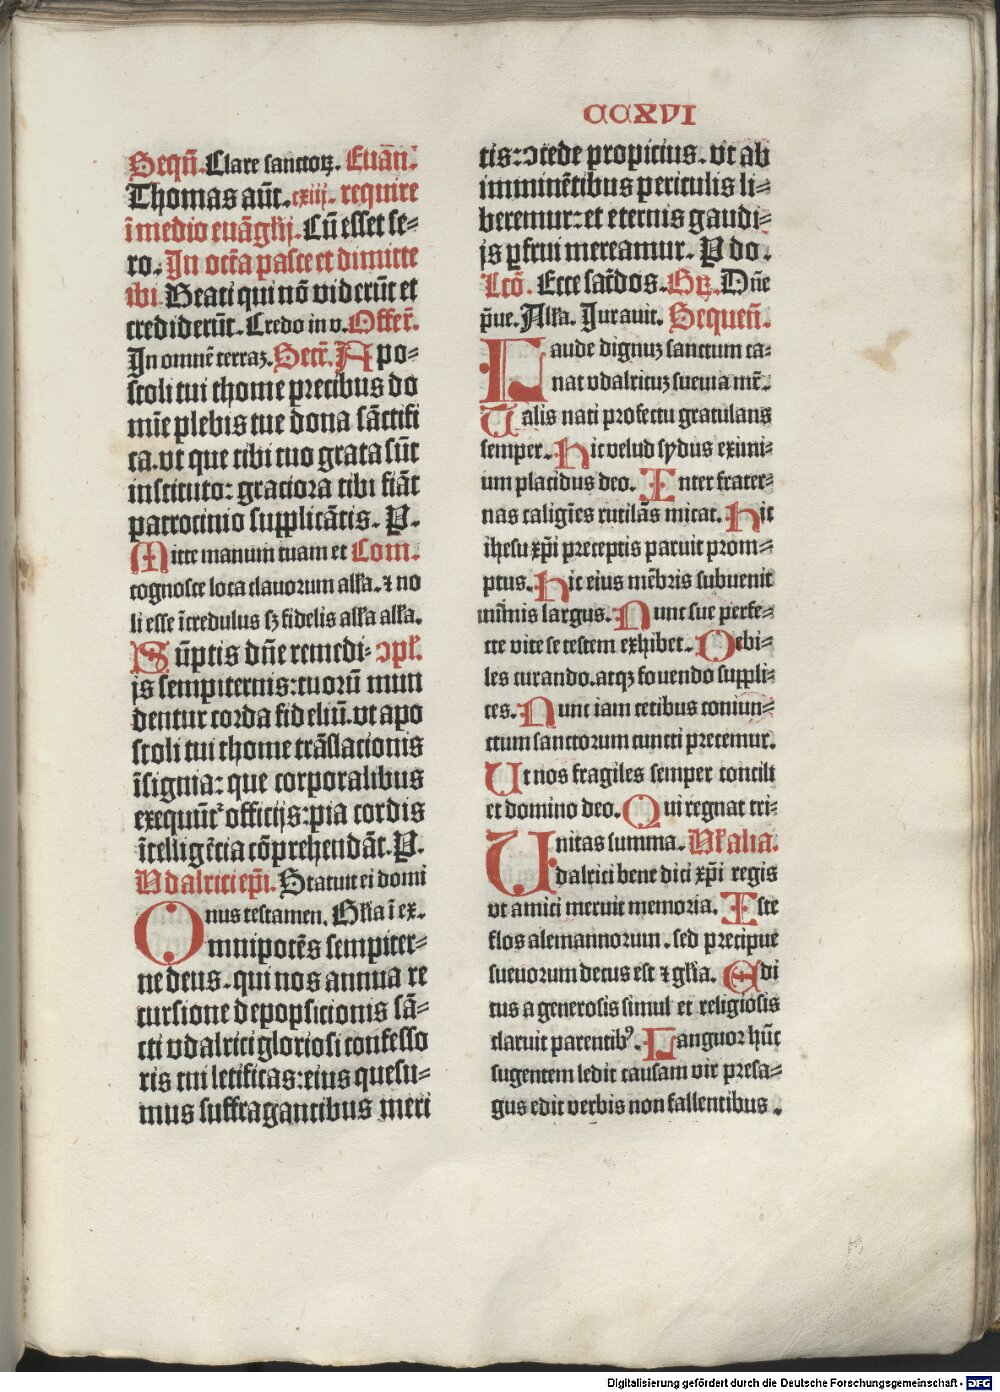 CCXVI
Sequẽ. Clare sanctoꝝ. Euãn.
Thomas aũt. cxiij. require
ĩ medio euãglij. Cũ esset se⸗
ro. In octa͂ pasce et dimitte
ibi Beati qui nõ viderũt et
crediderũt. Credo in v. Offer̃.
In omnẽ terraꝫ. Secr̃. Apo⸗
stoli tui thome precibus do
mĩe plebis tue dona sãctifi
ca. vt que tibi tuo grata sũt
instituto: graciora tibi fiãt
patrocinio supplicãtis. P.
Mitte manum tuam et Com.
cognosce loca clauorum alla. ⁊ no
li esse ĩcredulus sꝫ fidelis alla alla.
Sũptis dñe remedi⸗ ↄpl.
js sempiternis: tuorũ mun
dentur corda fideliũ. vt apo
stoli tui thome trãslacionis
ĩsignia: que corporalibus
exequũt᷑ officijs: pia cordis
ĩtelligẽcia cõprehendãt. P.
Vdalrici ep̃i. Statuit ei domi
nus testamen. Gl̃ia ĩ ex.
Omnipotẽs sempiter⸗
ne deus. qui nos annua re
cursione deposicionis sã⸗
cti vdalrici gloriosi confesso
ris tui letificas: eius quesu⸗
mus suffragantibus meri
tis: ↄcede propicius. vt ab
imminẽtibus periculis li⸗
beremur: et eternis gaudi⸗
js ꝑfrui mereamur. P do.
Lcõ. Ecce sac̃dos. Gꝝ. Dñe
p̃ue. Alla. Iurauit. Sequeñ.
Laude dignuꝫ sanctum ca⸗
nat vdalricuꝫ sueuia mr̃.
Talis nati profectu gratulans
semper. Hic velud sydus eximi⸗
um placidus deo. Inter frater⸗
nas caligĩes rutilãs micat. Hic
ihesu xp̃i preceptis paruit prom⸗
ptus. Hic eius mẽbris subuenit
mĩmis largus. Nunc sue perfe⸗
cte vite se testem exhibet. Debi⸗
les curando. atqꝫ fouendo suppli⸗
ces. Nunc iam cetibus coniun⸗
ctum sanctorum cuncti precemur.
Ut nos fragiles semper concili
et domino deo. Qui regnat tri⸗
nitas summa. Vl̃ alia.
Udalrici bene dici xp̃i regis
vt amici meruit memoria. Iste
flos alemannorum. sed precipue
sueuorum decus est ⁊ gl̃ia. Edi
tus a generosis simul et religiosis
claruit parentibꝰ. Languor hũc
sugentem ledit causam vir presa⸗
gus edit verbis non fallentibus.
Digitalisierung gefördert durch die Deutsche Forschungsgemeinschaft - DFG